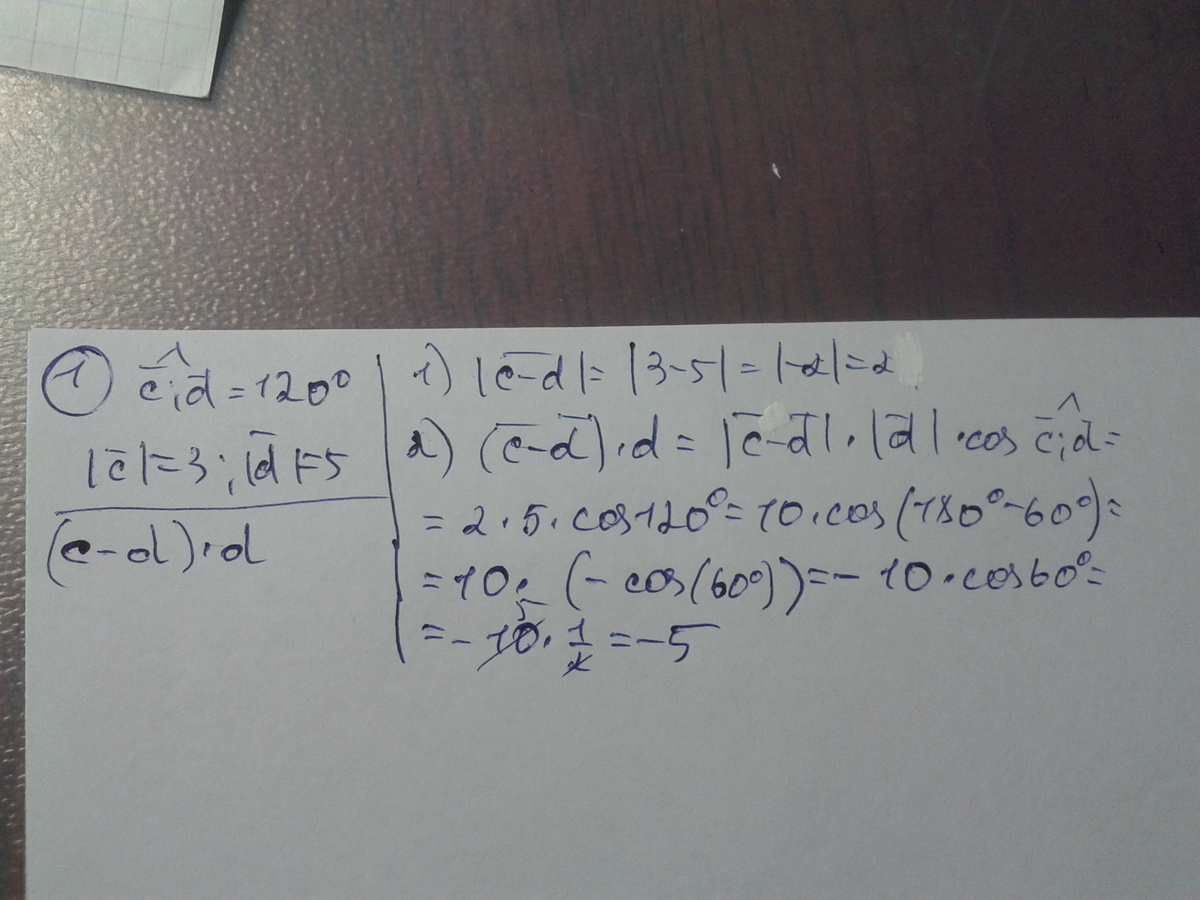 ① c̄;d̄^ = 120°
|c̄|=3; |d̄|=5
(c-d)·d
1) |c̅-̅d̅| = |3-5| = |-2| = 2
2) (c̄-d̄)·d = |c̄-d̄|·|d̄|·cos c̄;d̄^ =
= 2·5·cos120° = 10·cos(180°-60°) =
= 10·(-cos(60°)) = - 10·cos60° =
= - 10·1/2 = -5